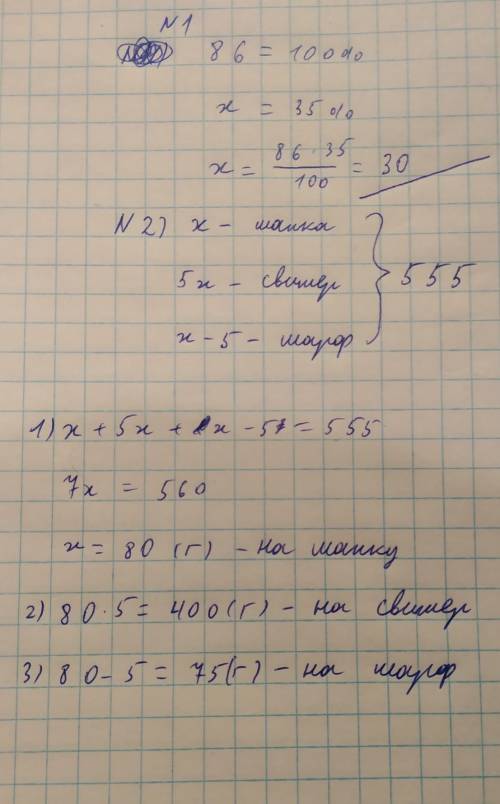 N1
86 = 100%
x = 35%
x = 86·35/100 = 30
N 2) x - шапка
5x - свитер
x - 5 - шарф
} 555
1) x + 5x + x - 5 = 555
7x = 560
x = 80 (г) - на шапку
2) 80·5 = 400 (г) - на свитер
3) 80 - 5 = 75 (г) - на шарф